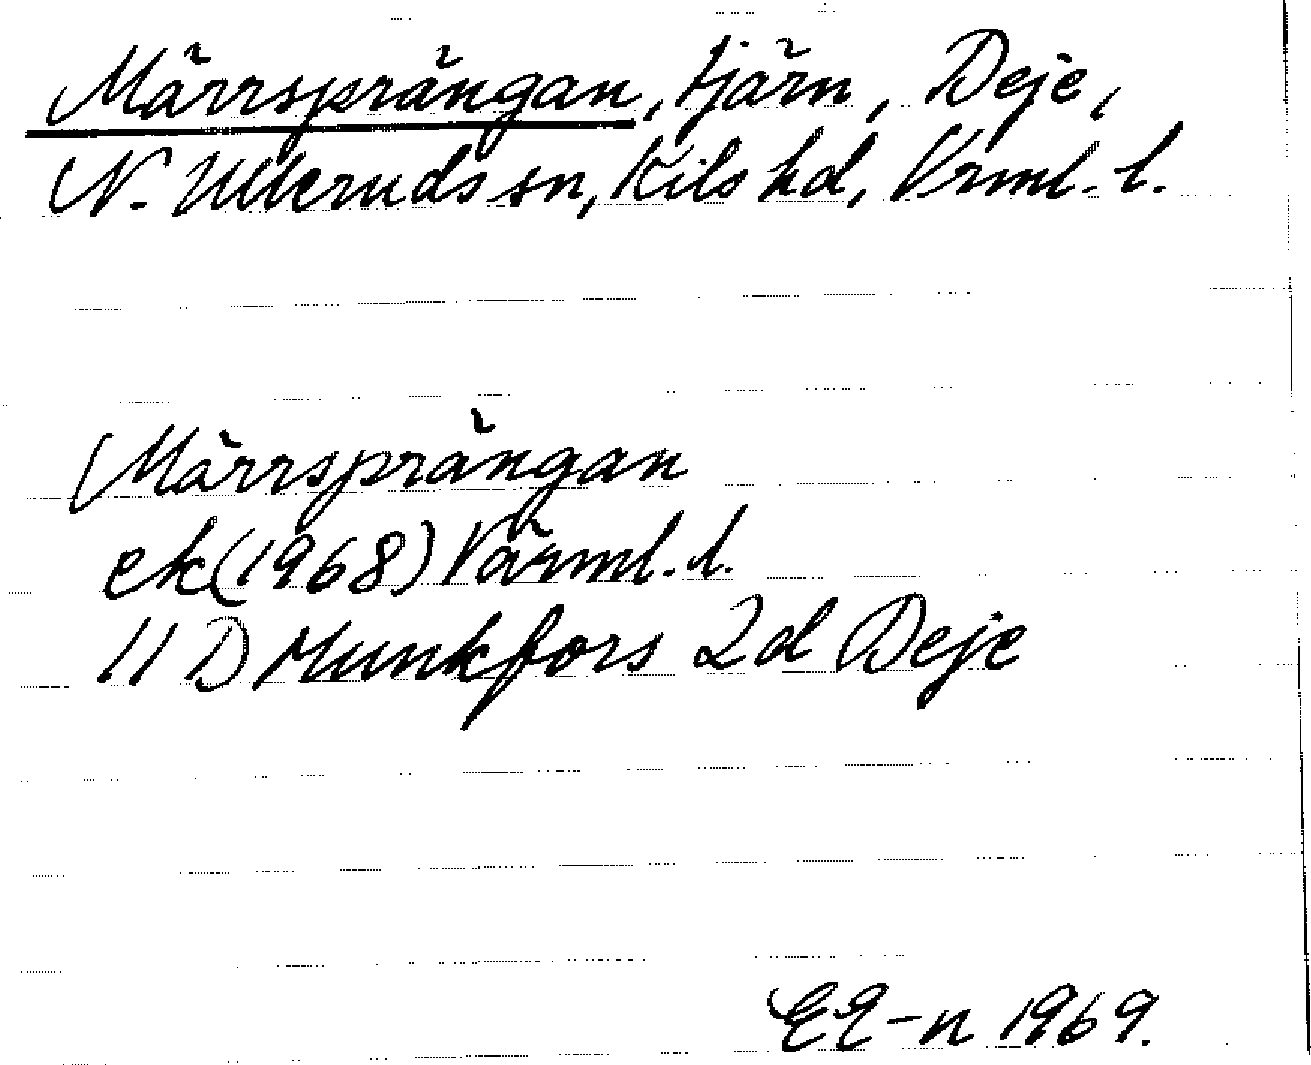 Märrsprängan, tjärn, Deje,
N. Ulleruds sn, Kils hd, Vrml. l.
Märrsprängan
ek (1968) Värml. l.
11 D Munkfors 2d Deje
EE-n 1969.